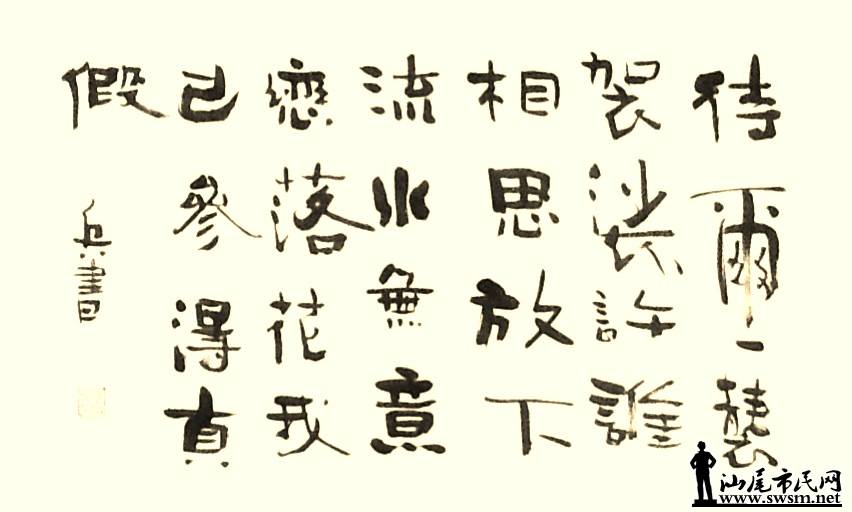 待爾一襲
袈裟許誰
相思放下
流水無意
戀落花我
已參得真
假
兵書
汕尾市民网
www.swsm.net